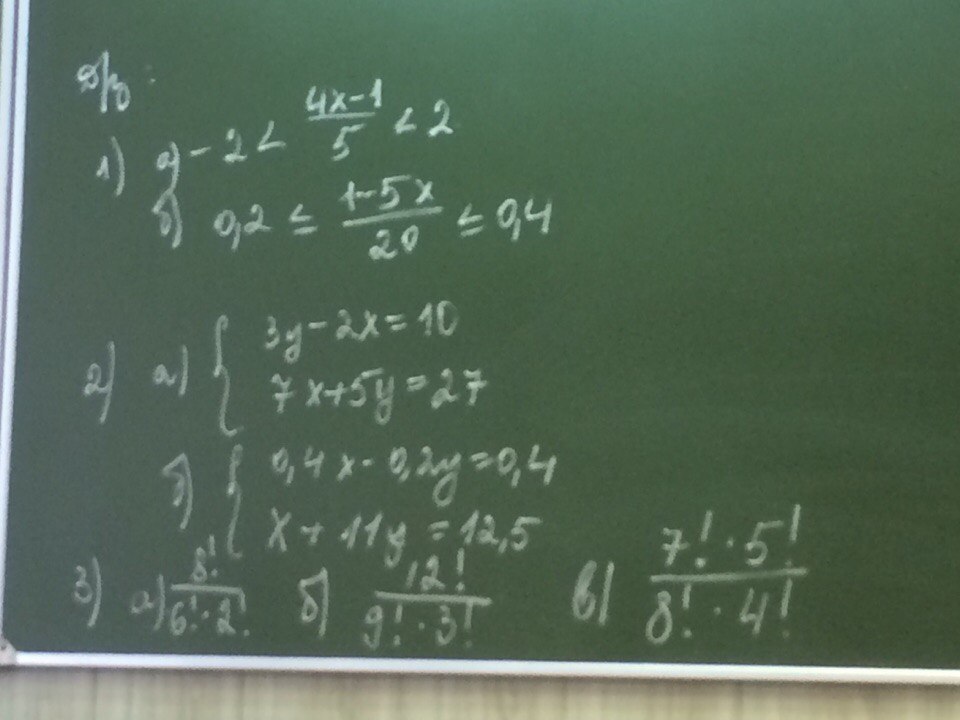 Д/з:
1) а) -2 < (4x-1)/5 < 2
б) 0,2 ≤ (1-5x)/20 ≤ 0,4
2) а) { 3y-2x=10
7x+5y=27
б) { 0,4x-0,2y=0,4
x+11y=12,5
3) а) 8!/(6!·2!) б) 12!/(9!·3!) в) (7!·5!)/(8!·4!)